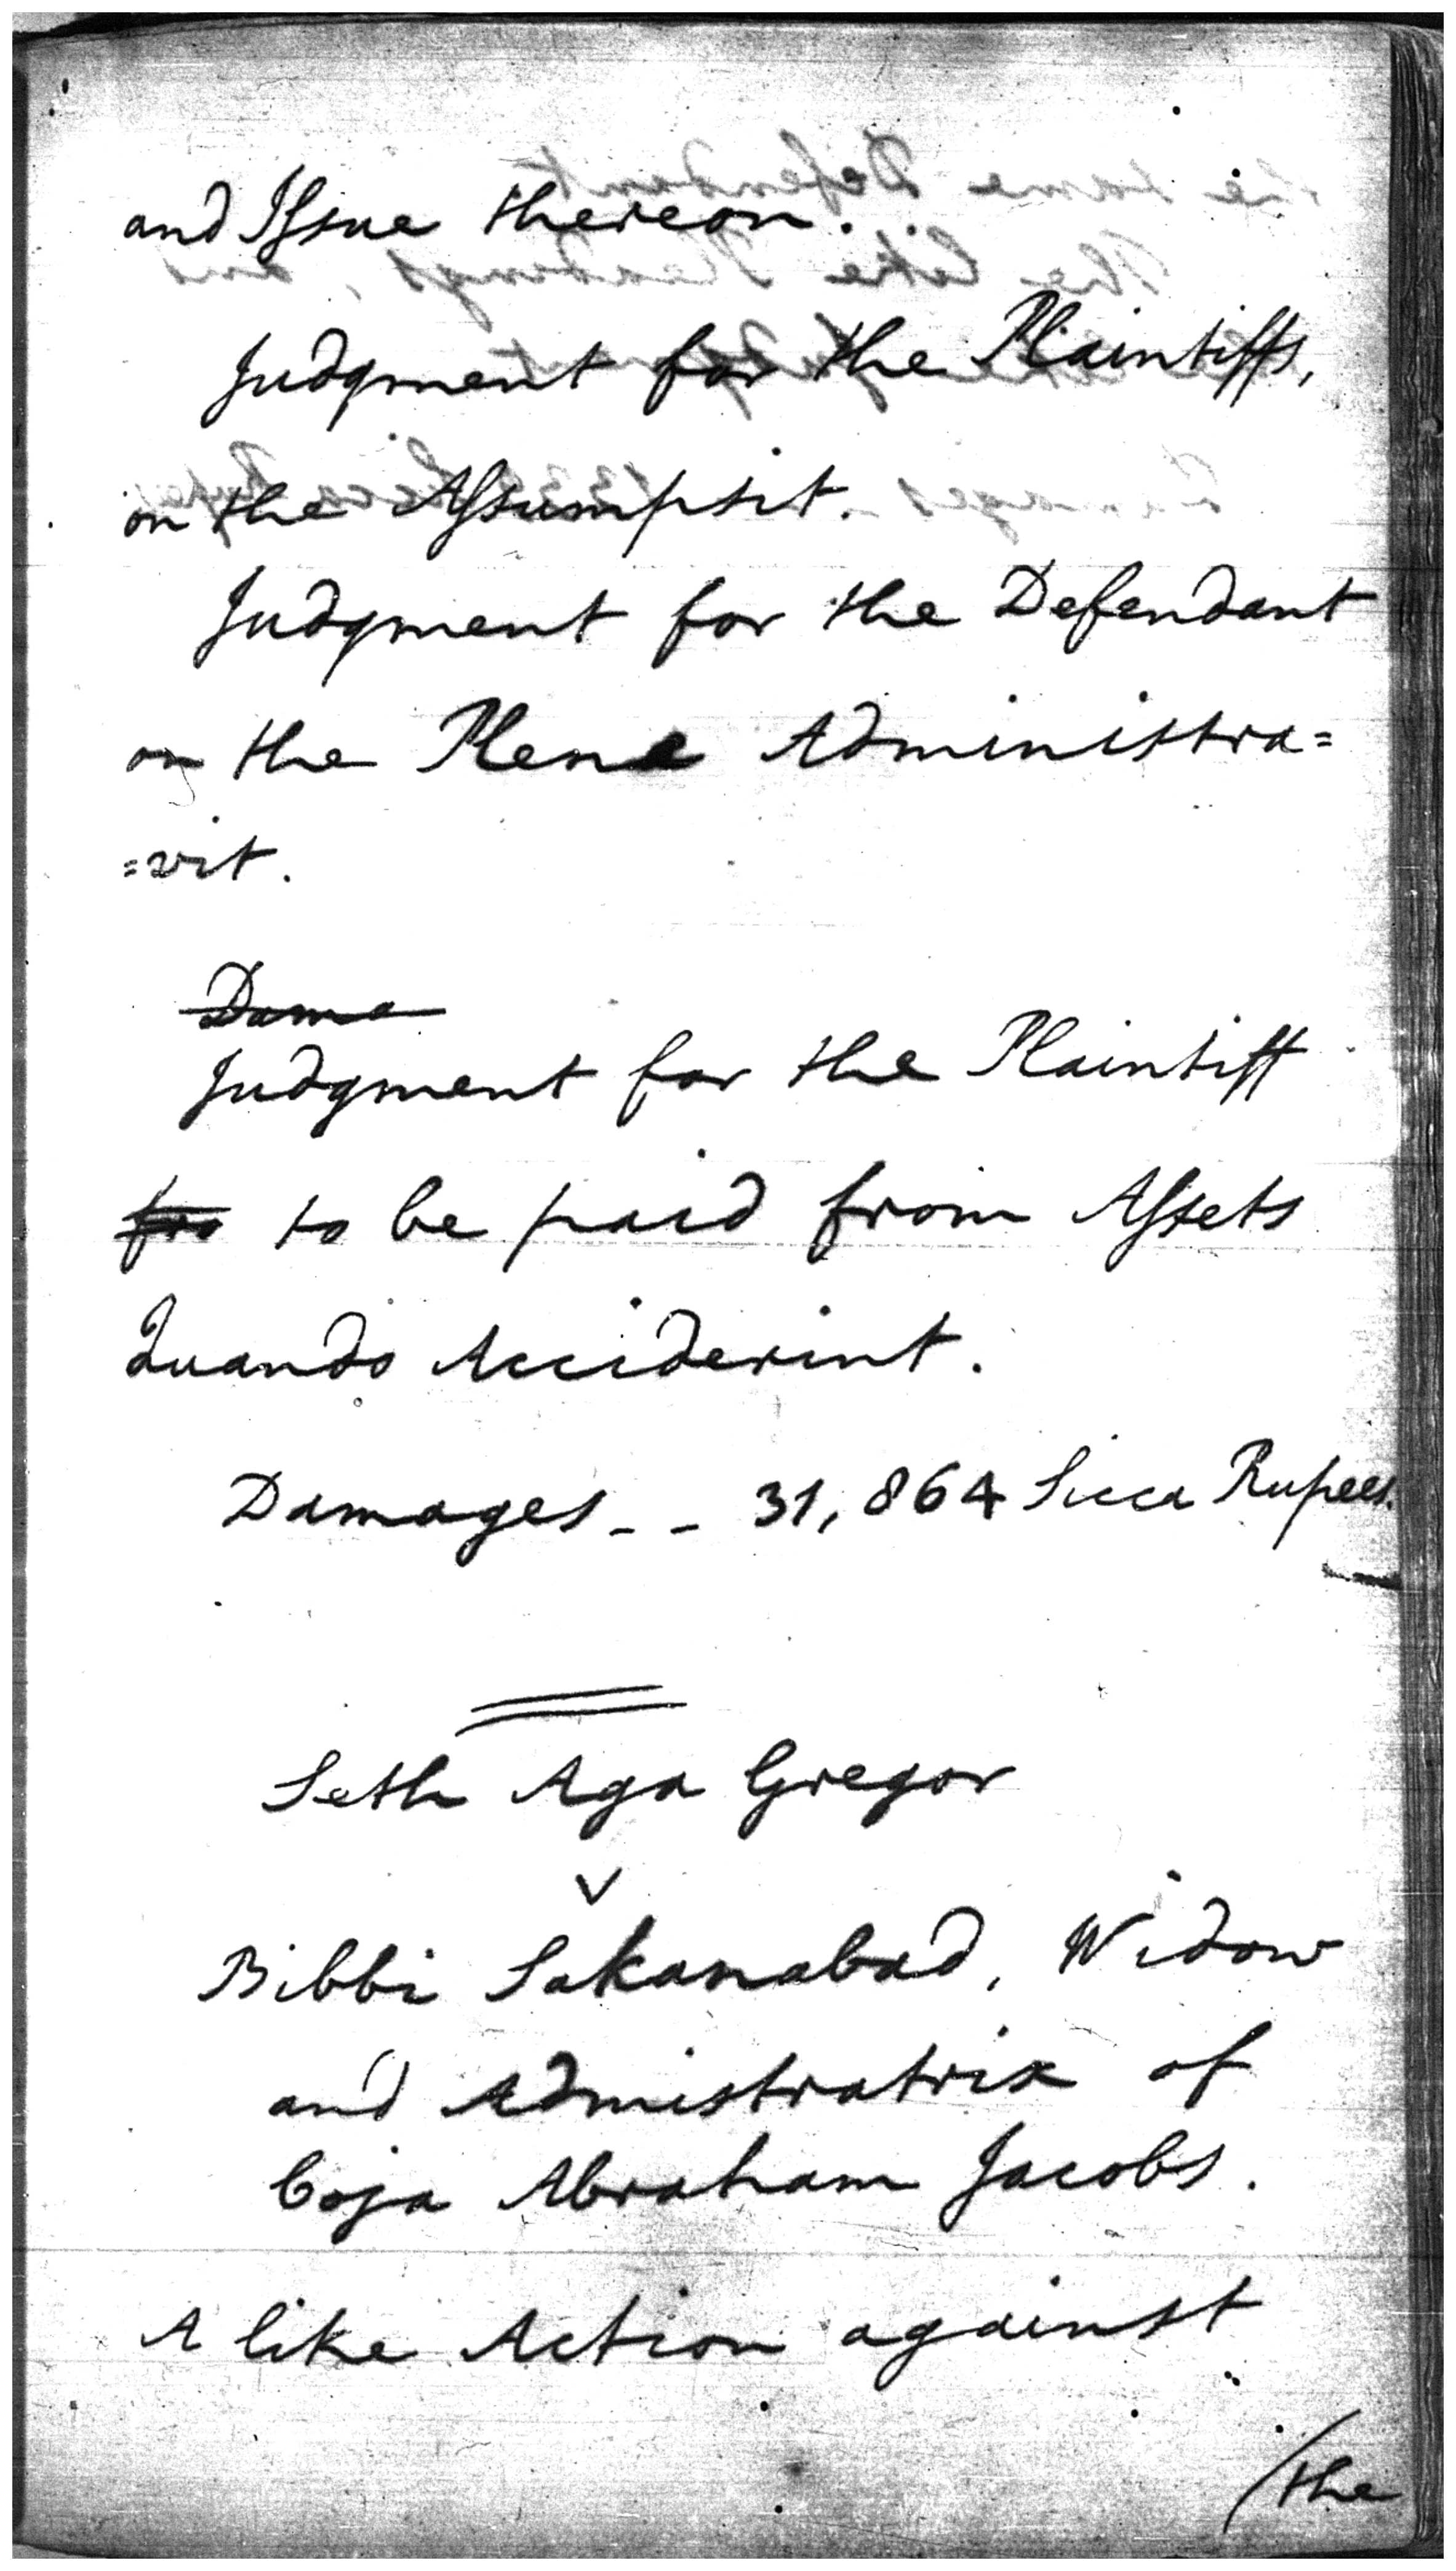 and Issue thereon.
Judgment for the Plaintiffs,
on the Assumpsit.
Judgment for the Defendant
on the Plene Administra=
=vit.
Dama
Judgment for the Plaintiff
fro to be paid from Assets
Quando Acciderint.
Damages - - 31,864 Sicca Rupees.
Seth Aga Gregor
v
Bibbi Sakanabad, Widow
and Admistratrix of
Coja Abraham Jacobs.
A like Action against
/the